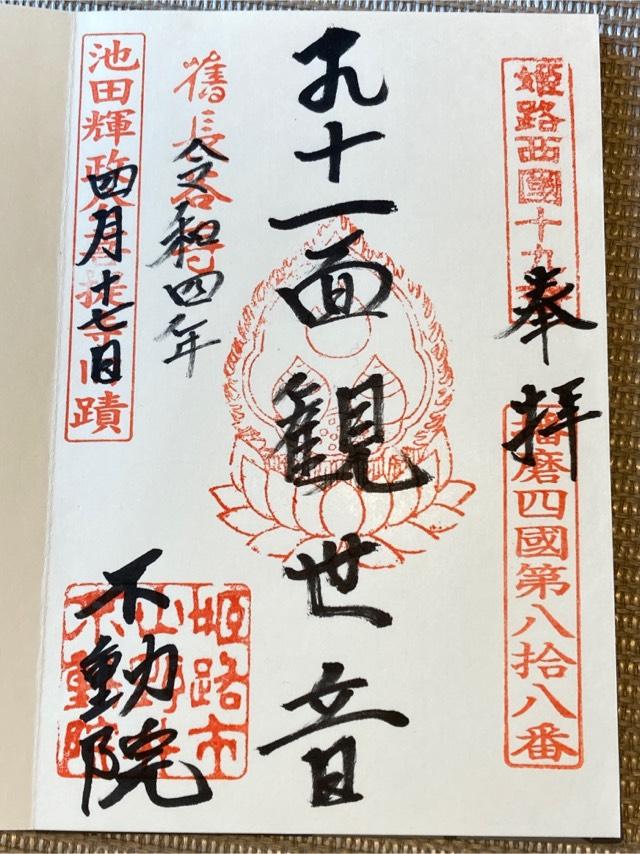 姫路西國十
奉拝
播磨四國第八拾八番
十一面観世音
舊長谷寺
令和四年
池田輝政公菩提寺蹟
四月十七日
不動院
姫路市
山野井
不動院